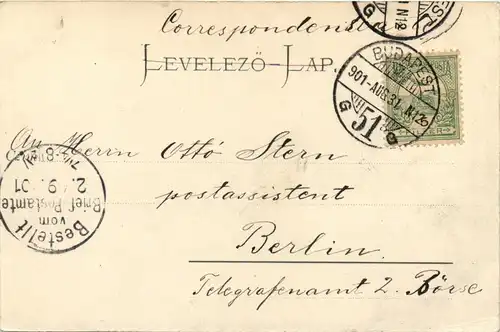 Correspondenz
LEVELEZŐ-LAP.
BUDAPEST
901-AUG.31.
G 51 G
An Herrn Ottó Stern
postassistent
Berlin.
Telegrafenamt 2. Börse
Bestellt
vom
Brief-Postamte
2. 9. 01